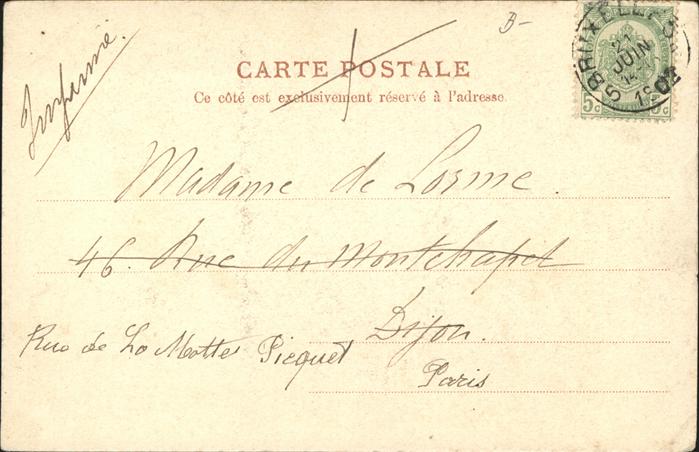 B-
Imprimé.
CARTE POSTALE
Ce côté est exclusivement réservé à l'adresse.
BRUXELLES
21
JUIN
5c 5c
Madame de Lorme.
46. Rue du Montchapet
Dijon.
Rue de La Motte Picquet
Paris